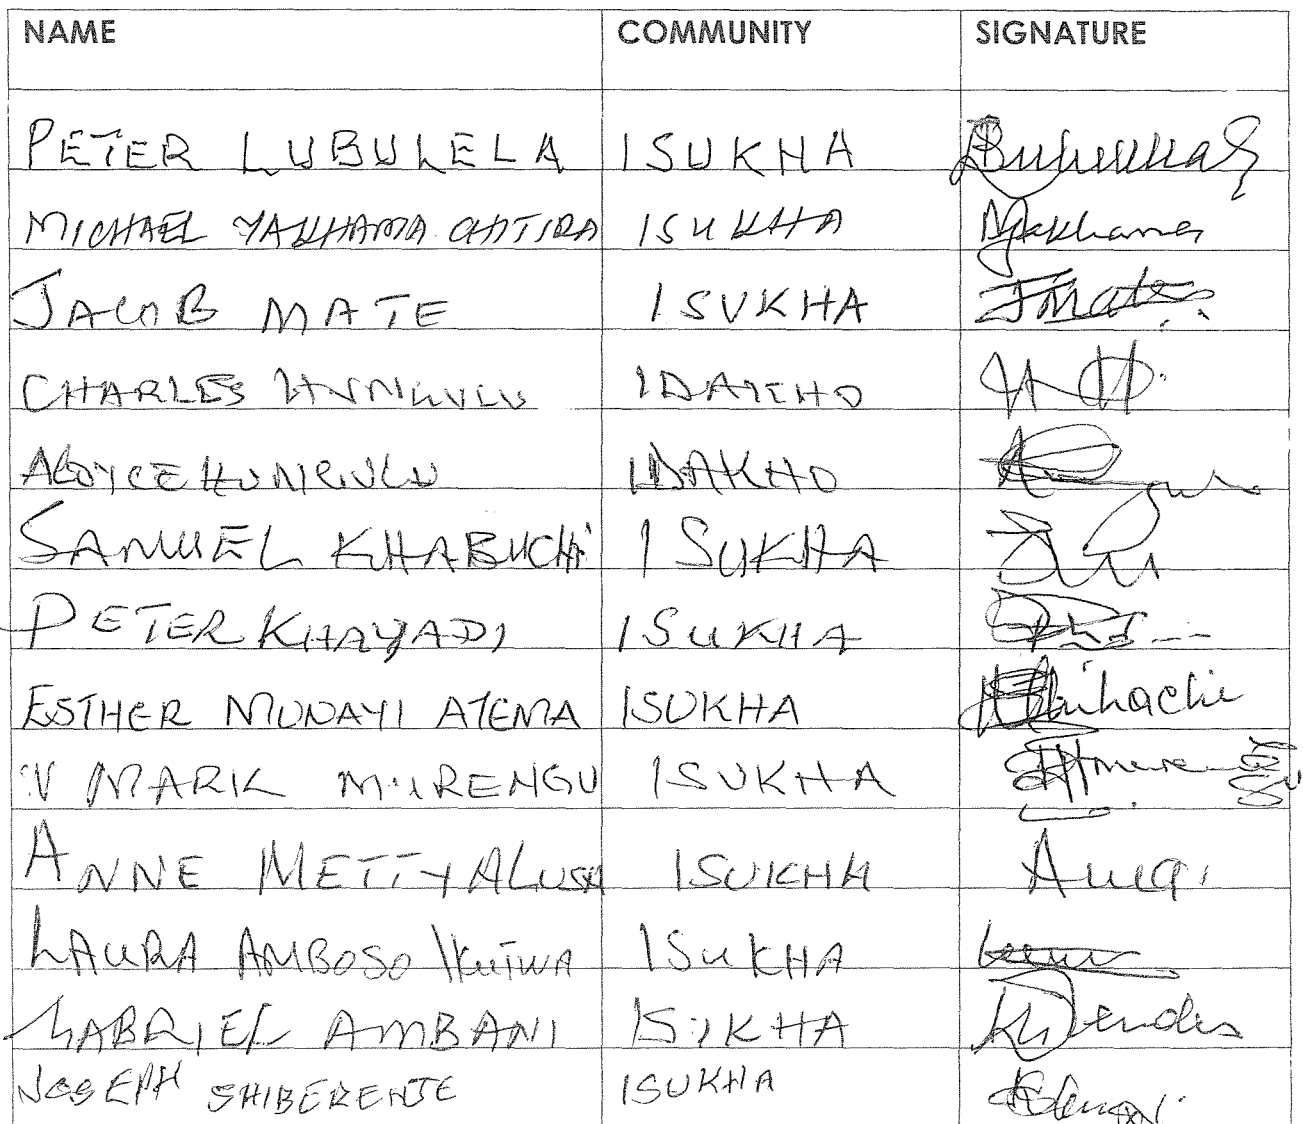 NAME COMMUNITY SIGNATURE
PETER LUBULELA ISUKHA
MICHAEL YAKHAMA CHITIRA ISUKHA
JACOB MATE ISUKHA JMate
CHARLES IDAKHO
ALOYCE HUNGULU IDAKHO
SAMUEL KHABUCHI ISUKHA
PETER KHAYADI ISUKHA
ESTHER MUNAYI ATEMA ISUKHA
MARK MURENGU ISUKHA
ANNE METTY ALUSA ISUKHA
LAURA AMBOSO IKUTWA ISUKHA
GABRIEL AMBANI ISUKHA
JOSEPH SHIBERENJE ISUKHA